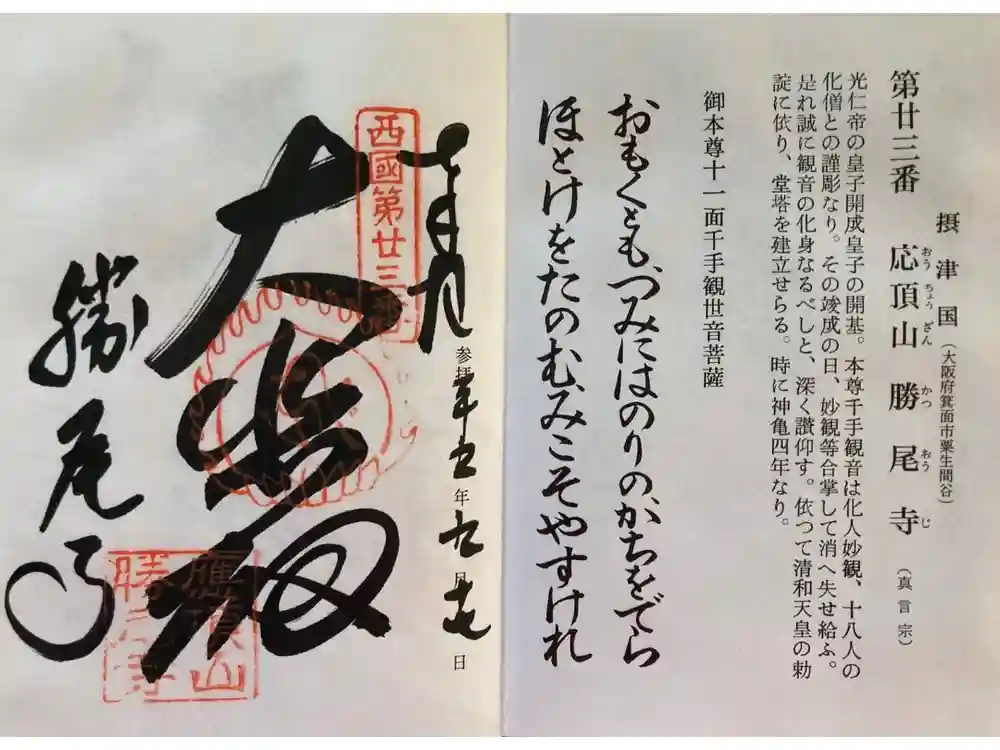 摂津国（大阪府箕面市粟生間谷）
第廿三番 応頂山 勝尾寺（真言宗）
おうちょうざん かつおうじ
光仁帝の皇子開成皇子の開基。本尊千手観音は化人妙観、十八人の
化僧との謹彫なり。その竣成の日、妙観等合掌して消へ失せ給ふ。
是れ誠に観音の化身なるべしと、深く讃仰す。依つて清和天皇の勅
諚に依り、堂塔を建立せらる。時に神亀四年なり。
御本尊十一面千手観世音菩薩
おもくともつみにはのりのかちをでら
ほとけをたのむみこそやすけれ
参拝 年 月 日
西國第廿三番
大悲殿
勝尾寺
應頂山
勝尾寺